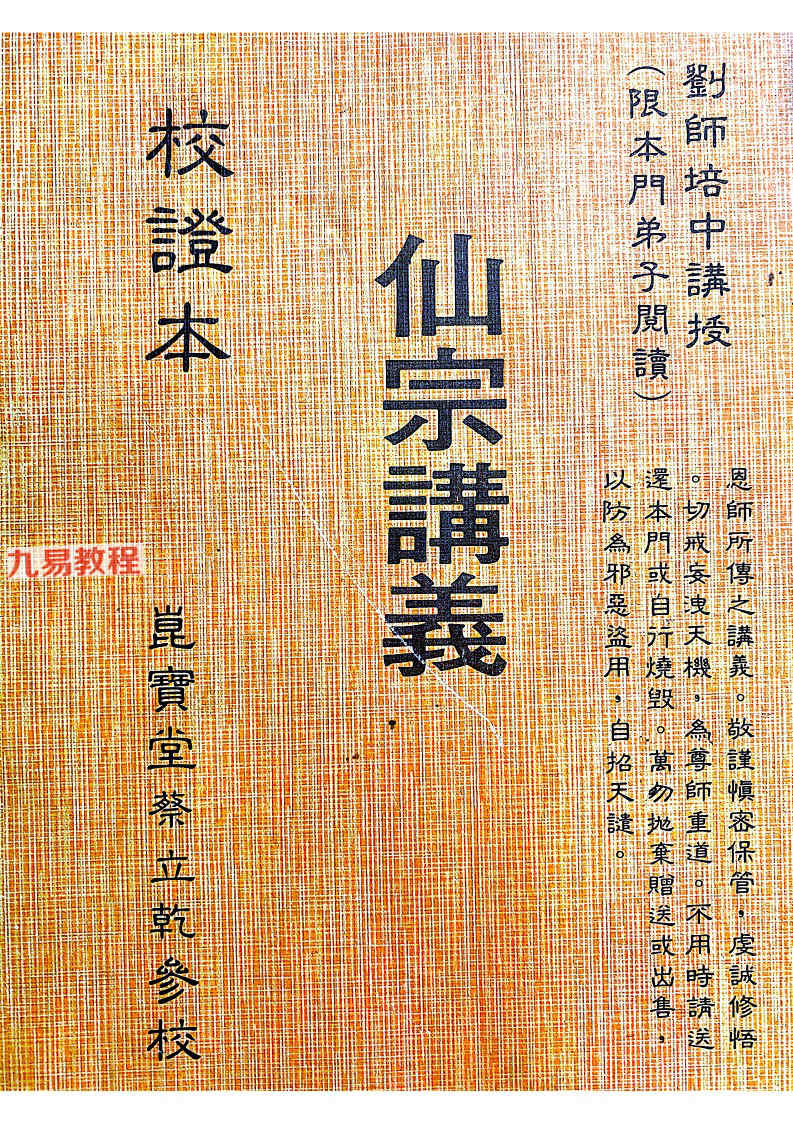 劉師培中講授
（限本門弟子閱讀）
恩師所傳之講義。敬謹慎密保管，虔誠修悟
。切戒妄洩天機，為尊師重道。不用時請送
還本門或自行燒毀。萬勿拋棄贈送或出售，
以防為邪惡盜用，自招天譴。
仙宗講義
校證本
崑寶堂蔡立乾參校
九易教程